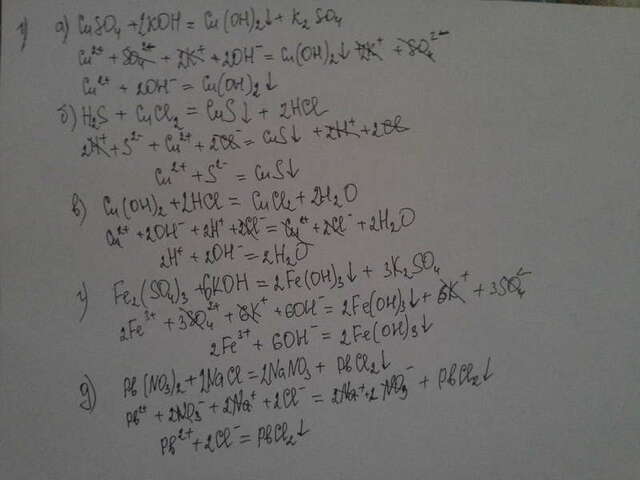 1) а) CuSO₄ + 2KOH = Cu(OH)₂↓ + K₂SO₄
Cu²⁺ + SO₄²⁻ + 2K⁺ + 2OH⁻ = Cu(OH)₂↓ 2K⁺ + SO₄²⁻
Cu²⁺ + 2OH⁻ = Cu(OH)₂↓
б) H₂S + CuCl₂ = CuS↓ + 2HCl
2H⁺ + S²⁻ + Cu²⁺ + 2Cl⁻ = CuS↓ + 2H⁺ + 2Cl
Cu²⁺ + S²⁻ = CuS↓
в) Cu(OH)₂ + 2HCl = CuCl₂ + 2H₂O
Cu²⁺ + 2OH⁻ + 2H⁺ + 2Cl⁻ = Cu²⁺ + 2Cl⁻ + 2H₂O
2H⁺ + 2OH⁻ = 2H₂O
г) Fe₂(SO₄)₃ + 6KOH = 2Fe(OH)₃↓ + 3K₂SO₄
2Fe³⁺ + 3SO₄²⁺ + 6K⁺ + 6OH⁻ = 2Fe(OH)₃↓ + 6K⁺ + 3SO₄²⁻
2Fe³⁺ + 6OH⁻ = 2Fe(OH)₃↓
д) Pb(NO₃)₂ + 2NaCl = 2NaNO₃ + PbCl₂↓
Pb²⁺ + 2NO₃⁻ + 2Na⁺ + 2Cl⁻ = 2Na⁺ + 2NO₃⁻ + PbCl₂↓
Pb²⁺ + 2Cl⁻ = PbCl₂↓